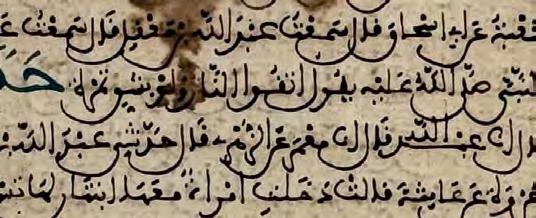 شعبة عن ابي اسحاق قال سمعت عبد الله بن معقل قال سمعت عد
النبي صلى الله عليه يقول اتقوا النار ولو بشق تمرة حد
قال انا عبد الله قال انا معمر عن الزهري قال حدثني عبد الله بن
عروة عن عايشة قالت دخلت امراة معها ابنتان لها تسـ